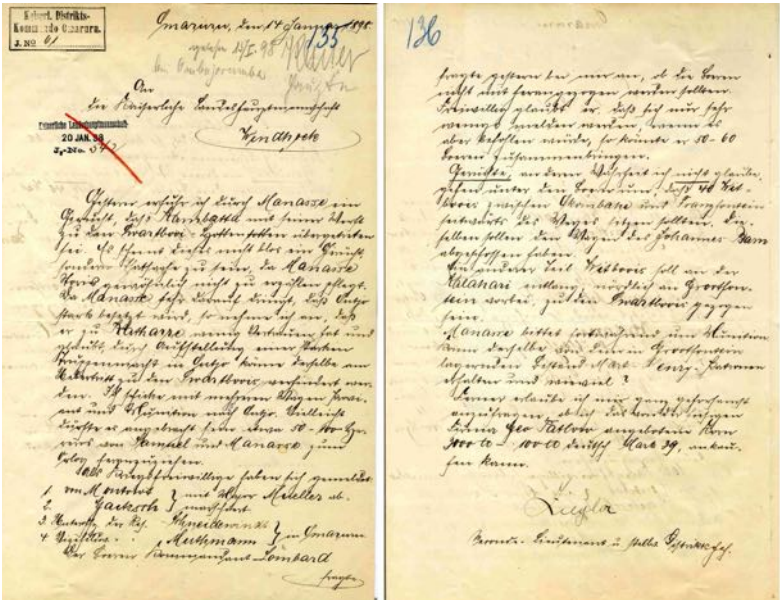 Kaiserl. Distrikts-
Kommando Omaruru.
J. No 61
Omaruru, den 14 Januar 1898.
135
gelesen 24/I. 98
An
die Kaiserliche Landeshauptmannschaft
Windhoek
Kaiserliche Landeshauptmannschaft
20 JAN. 98
J.-No. 342
Gestern erfuhr ich durch Manasse ein
Gerücht, daß Kambatta mit seiner Werft
zu den Swartbooi-Hottentotten übergetreten
sei. Es scheint dieses nicht blos ein Gerücht,
sondern Thatsache zu sein, da Manasse
gewöhnlich nicht zu erzählen pflegt.
Da Manasse sehr darauf dringt, daß Outjo
stark besetzt wird, so nehme ich an, daß
er zu Katharre wenig Vertrauen hat und
glaubt, durch Aufstellung einer starken
Truppenmacht in Outjo könne derselbe am
Übertritt zu den Swartboois verhindert wer-
den. Ich schicke mit mehreren Wagen Provi-
ant und Munition nach Outjo. Vielleicht
dürfte es angebracht sein etwa 50-100 He-
reros von Samuel und Manasse zum
heranzuziehen.
Als Kriegsfreiwillige haben sich gemeldet:
1. von Montort } mit Major Mueller ab-
2. Gaitzsch } marschiert
3 Unteroffz. der Res. Schneidewind }
4 Muthmann } in Omaruru
Der Boeren Kommandant Lombard
fragte
136
fragte gestern bei mir an, ob die Boeren
nicht mit herangezogen werden sollten.
Freiwillig glaubt er, daß sich nur sehr
wenige melden werden, wenn es
aber befohlen würde, so könnte er 50-60
Boeren zusammenbringen.
Gerüchte, an deren Wahrheit ich nicht glaube,
gehen unter den Boeren um, daß 40 Wit-
boois zwischen Okombahe und Franzfontein
seitwärts des Weges sitzen sollten. Die-
selben sollen den Wagen des Johannes Bam
abgeschossen haben.
Ein anderer Teil Witboois soll an der
Kalahari entlang, nördlich an Grootfon-
tein vorbei, zu den Swartboois gezogen
sein.
Manasse bittet fortwährend um Munition
kann derselbe von dem in Grootfontein
lagernden Bestand Mart. Henry-Patronen
erhalten und wieviel?
Ferner erlaube ich mir ganz gehorsamst
anzufragen, ob ich das von der hiesigen
Firma Geo angebotene Korn
3000 100 deutsch Mark 39, ankau-
fen kann.
Ziegler
Seconde-Lieutenant u. stellv. Distriktschef.